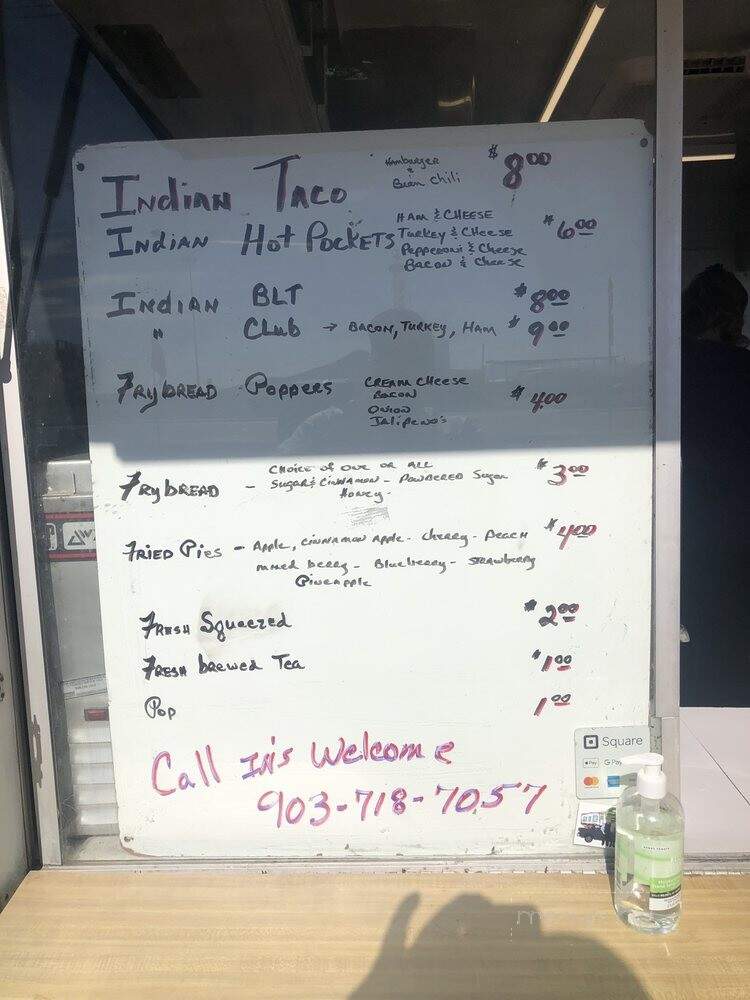 Indian Taco Hamburger & Bean Chili $8.00
Indian Hot Pockets Ham & Cheese $6.00
Turkey & Cheese
Pepperoni & Cheese
Bacon & Cheese
Indian BLT $8.00
" Club → Bacon, Turkey, Ham $9.00
Frybread Poppers Cream Cheese $4.00
Bacon
Onion
Jalipeno's
Frybread - Choice of one or all $3.00
Sugar & Cinnamon - Powdered Sugar
Honey -
Fried Pies - Apple, Cinnamon Apple - Cherry - Peach $4.00
mixed berry - Blueberry - Strawberry
Pineapple
Fresh Squeezed $2.00
Fresh brewed Tea $1.00
Pop 1.00
Call In's Welcome
903-718-7057
Square
Pay G Pay